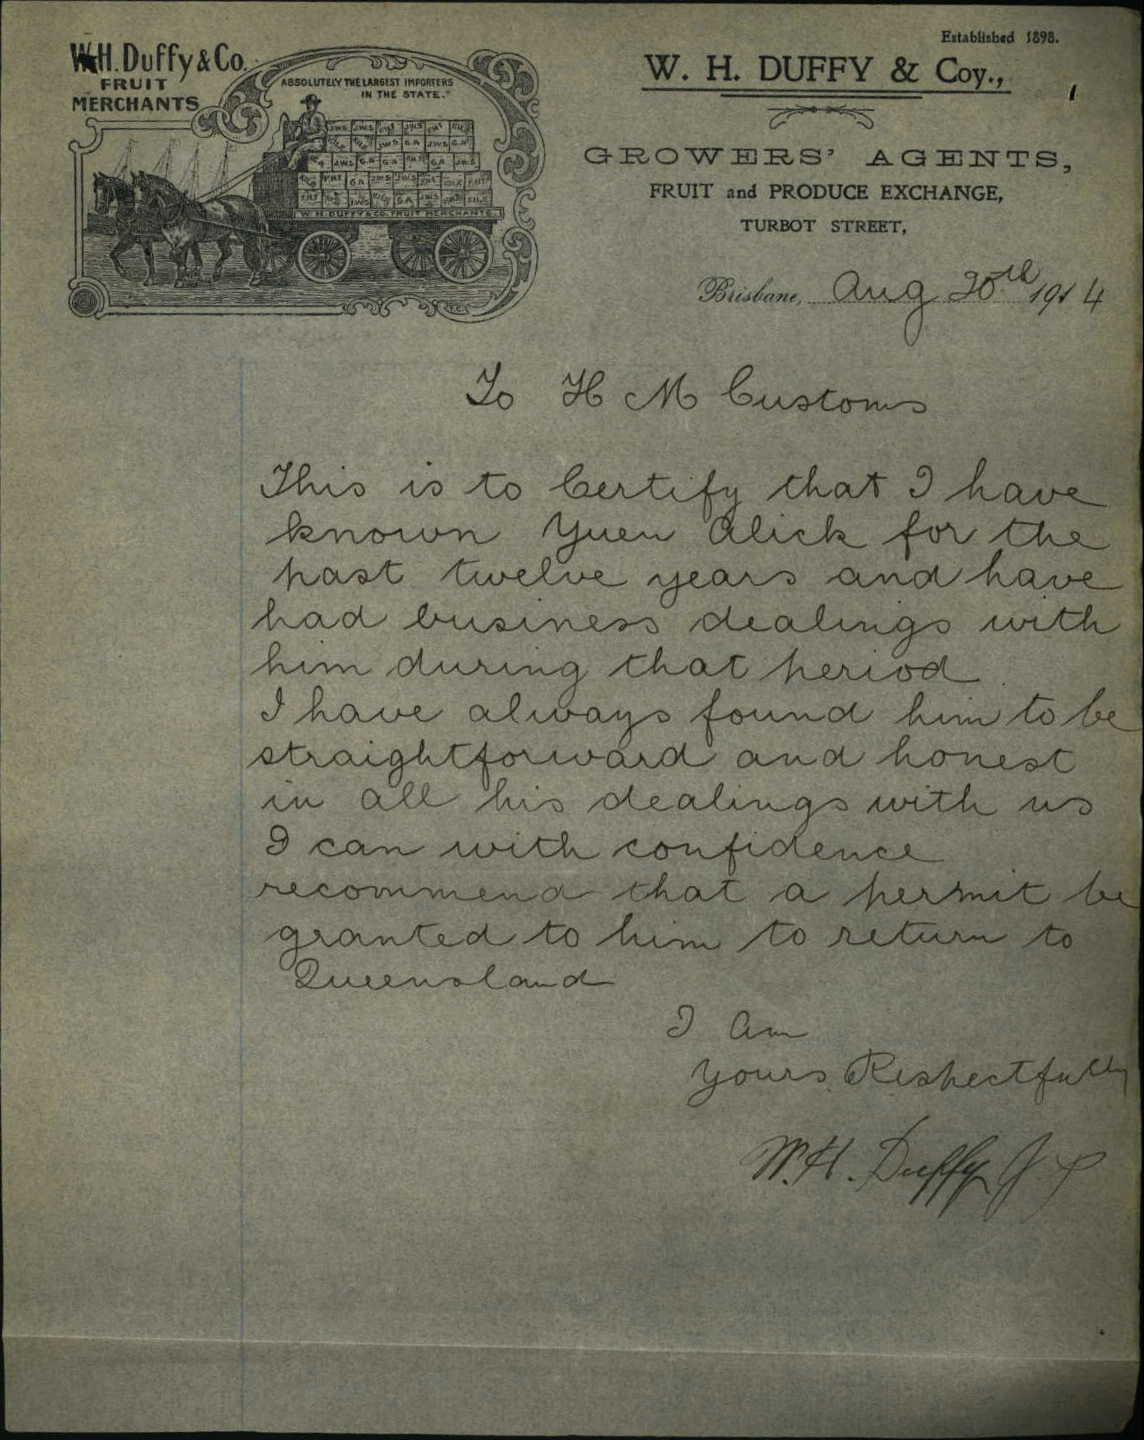 Established 1898.
W.H. Duffy & Co.
FRUIT
MERCHANTS
"ABSOLUTELY THE LARGEST IMPORTERS
IN THE STATE."
W. H. DUFFY & CO. FRUIT MERCHANTS.
W. H. DUFFY & Coy.,
GROWERS' AGENTS,
FRUIT and PRODUCE EXCHANGE,
TURBOT STREET,
Brisbane, Aug 30th 1914
To H M Customs
This is to Certify that I have
known Yuen Alick for the
past twelve years and have
had business dealings with
him during that period
I have always found him to be
straightforward and honest
in all his dealings with us
I can with confidence
recommend that a permit be
granted to him to return to
Queensland
I Am
Yours Respectfully
W. H. Duffy J. P